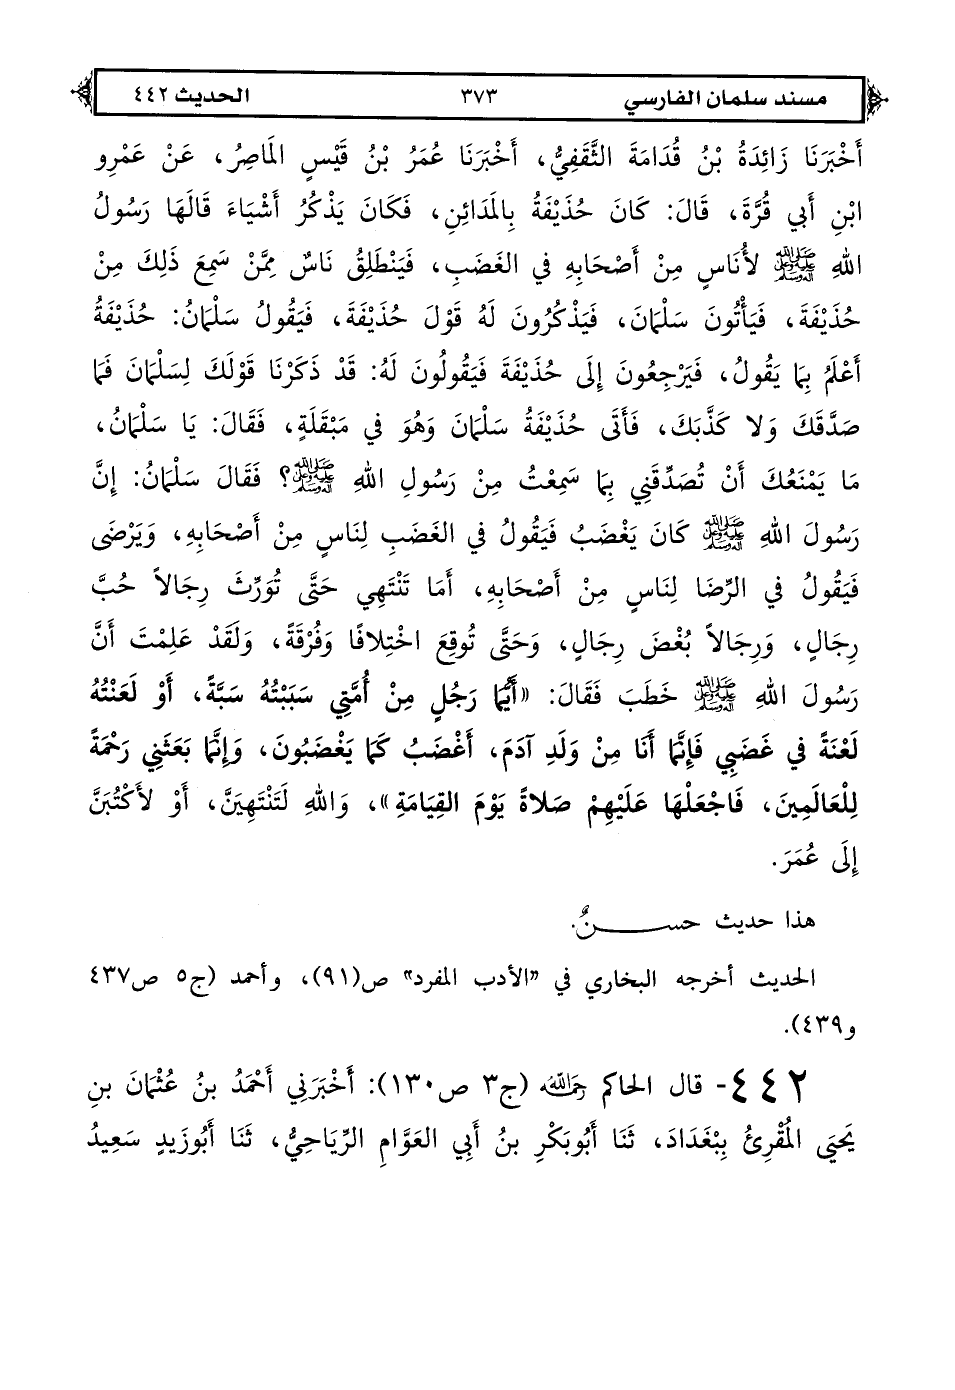 مسند سلمان الفارسي ٣٧٣ الحديث ٤٤٢
أَخْبَرَنَا زَائِدَةُ بْنُ قُدَامَةَ الثَّقَفِيُّ، أَخْبَرَنَا عُمَرُ بْنُ قَيْسٍ المَاصِرُ، عَنْ عَمْرِو
ابْنِ أَبِي قُرَّةَ، قَالَ: كَانَ حُذَيْفَةُ بِالمَدَائِنِ، فَكَانَ يَذْكُرُ أَشْيَاءَ قَالَهَا رَسُولُ
اللهِ ﷺ لأُنَاسٍ مِنْ أَصْحَابِهِ فِي الغَضَبِ، فَيَنْطَلِقُ نَاسٌ مِمَّنْ سَمِعَ ذَلِكَ مِنْ
حُذَيْفَةَ، فَيَأْتُونَ سَلْمَانَ، فَيَذْكُرُونَ لَهُ قَوْلَ حُذَيْفَةَ، فَيَقُولُ سَلْمَانُ: حُذَيْفَةُ
أَعْلَمُ بِمَا يَقُولُ، فَيَرْجِعُونَ إِلَى حُذَيْفَةَ فَيَقُولُونَ لَهُ: قَدْ ذَكَرْنَا قَوْلَكَ لِسَلْمَانَ فَمَا
صَدَّقَكَ وَلا كَذَّبَكَ، فَأَتَى حُذَيْفَةُ سَلْمَانَ وَهُوَ فِي مَبْقَلَةٍ، فَقَالَ: يَا سَلْمَانُ،
مَا يَمْنَعُكَ أَنْ تُصَدِّقَنِي بِمَا سَمِعْتُ مِنْ رَسُولِ اللهِ ﷺ؟ فَقَالَ سَلْمَانُ: إِنَّ
رَسُولَ اللهِ ﷺ كَانَ يَغْضَبُ فَيَقُولُ فِي الغَضَبِ لِنَاسٍ مِنْ أَصْحَابِهِ، وَيَرْضَى
فَيَقُولُ فِي الرِّضَا لِنَاسٍ مِنْ أَصْحَابِهِ، أَمَا تَنْتَهِي حَتَّى تُوَرِّثَ رِجَالاً حُبَّ
رِجَالٍ، وَرِجَالاً بُغْضَ رِجَالٍ، وَحَتَّى تُوقِعَ اخْتِلافًا وَفُرْقَةً، وَلَقَدْ عَلِمْتَ أَنَّ
رَسُولَ اللهِ ﷺ خَطَبَ فَقَالَ: «أَيُّمَا رَجُلٍ مِنْ أُمَّتِي سَبَبْتُهُ سَبَّةً، أَوْ لَعَنْتُهُ
لَعْنَةً فِي غَضَبِي فَإِنَّمَا أَنَا مِنْ وَلَدِ آدَمَ، أَغْضَبُ كَمَا يَغْضَبُونَ، وَإِنَّمَا بَعَثَنِي رَحْمَةً
لِلْعَالَمِينَ، فَاجْعَلْهَا عَلَيْهِمْ صَلاةً يَوْمَ القِيَامَةِ»، وَاللهِ لَتَنْتَهِيَنَّ، أَوْ لأَكْتُبَنَّ
إِلَى عُمَرَ.
هذا حديث حســـنٌ.
الحديث أخرجه البخاري في "الأدب المفرد" ص(٩١)، وأحمد (ج٥ ص٤٣٧
و٤٣٩).
٤٤٢- قال الحاكم رحمه الله (ج٣ ص١٣٠): أَخْبَرَنِي أَحْمَدُ بنُ عُثْمَانَ بنِ
يَحيَى المُقْرِئُ بِبَغْدَادَ، ثَنَا أَبُوبَكْرِ بنُ أَبِي العَوَّامِ الرِّيَاحِيُّ، ثَنَا أَبُوزَيدٍ سَعِيدُ